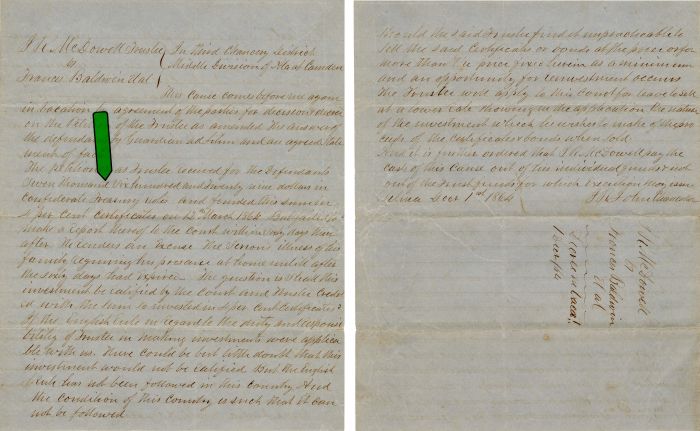 J.N. McDowell Trustee
vs
Francis Baldwin et al
In third Chancery District
Middle Division of Ala at Camden
This cause comes before me again
in vacation by agreement of the parties for decision & decree
on the of the Trustee as amended the answer of
the defendants by Guardian ad litem and an agreed State
ment of fac
The Petitioner as Trustee received for the Defendants
Seven thousand Six hundred and twenty nine dollars in
Confederate Treasury notes and funded this sum in
4 per cent certificates on 12th March 1864 But failed to
make a report thereof to the Court within sixty days there
after. He renders an excuse the serious illness of his
family requiring his presence at home until after
the sixty days had expired. The question is shall this
investment be ratified by the Court and Trustee Credit
ed with the sum so invested in 4 per cent certificates?
If the English rule in regard to the duty and respons
ibility of Trustees in making investments were applica
ble with us. There could be but little doubt that this
investment would not be ratified But the English
rule has not been followed in this country And
the condition of this country is such that it can
not be followed
Should the said Trustee find it impracticable to
sell the said certificates or bonds at the price or for
more than the price fixed herein as a minimum
and an opportunity for reinvestment occurs
the Trustee will apply to this Court for leave to sell
at a lower rate showing in the application the nature
of the investment which he wishes to make of the pro
ceeds of the certificates or bonds when sold
And it is further ordered that J.N. McDowell pay the
costs of this cause out of his individual funds & not
out of the Trust funds for which execution may issue
Selma Decr 1st 1864
J.N. McDowell
vs
Francis Baldwin
et al